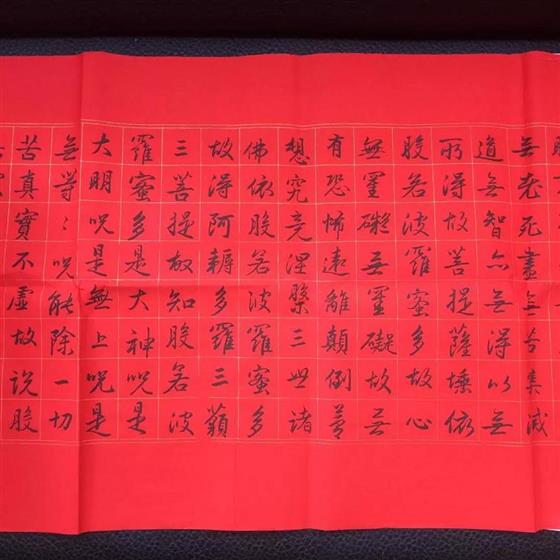 無老死盡無苦集滅
道無智亦無得以無
所得故菩提薩埵依
般若波羅蜜多故心
無罣礙無罣礙故無
有恐怖遠離顛倒夢
想究竟涅槃三世諸
佛依般若波羅蜜多
故得阿耨多羅三藐
三菩提故知般若波
羅蜜多是大神呪是
大明呪是無上呪是
無等〻呪能除一切
苦真實不虛故說般